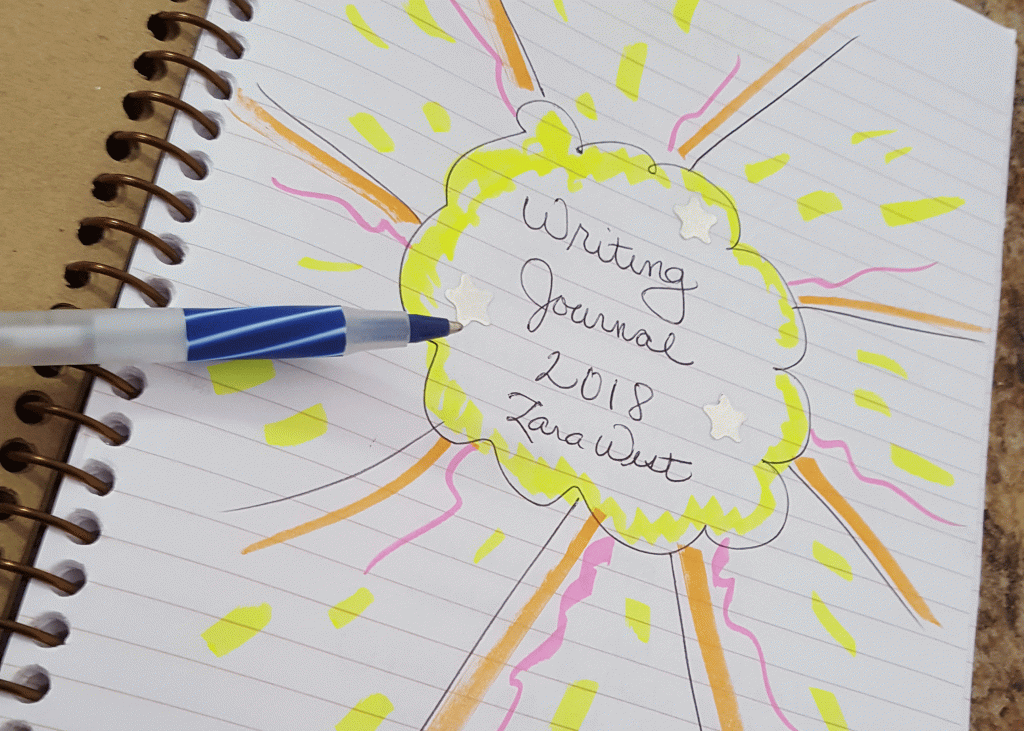 Writing
Journal
2018
Zara West